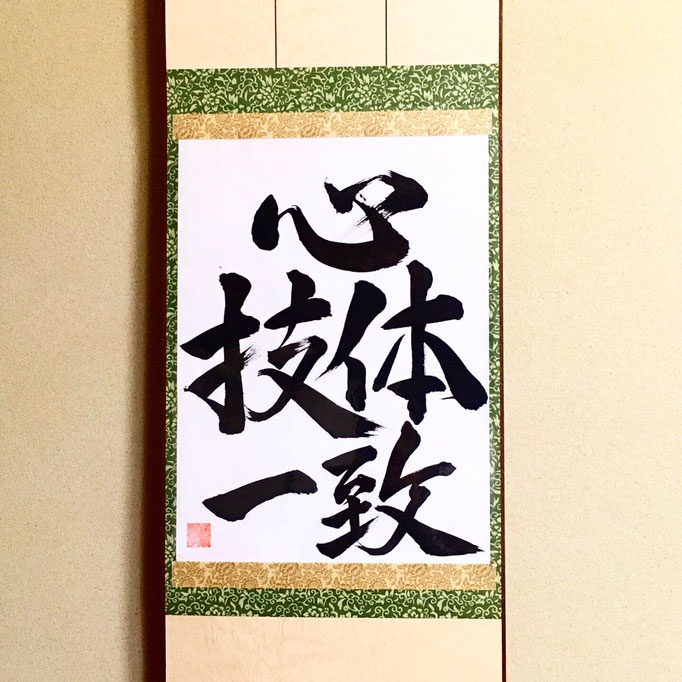 心
技体
一致